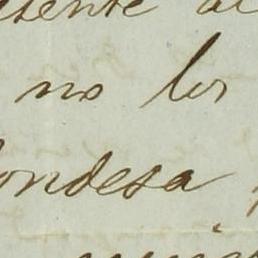 esente al
no les
ondesa